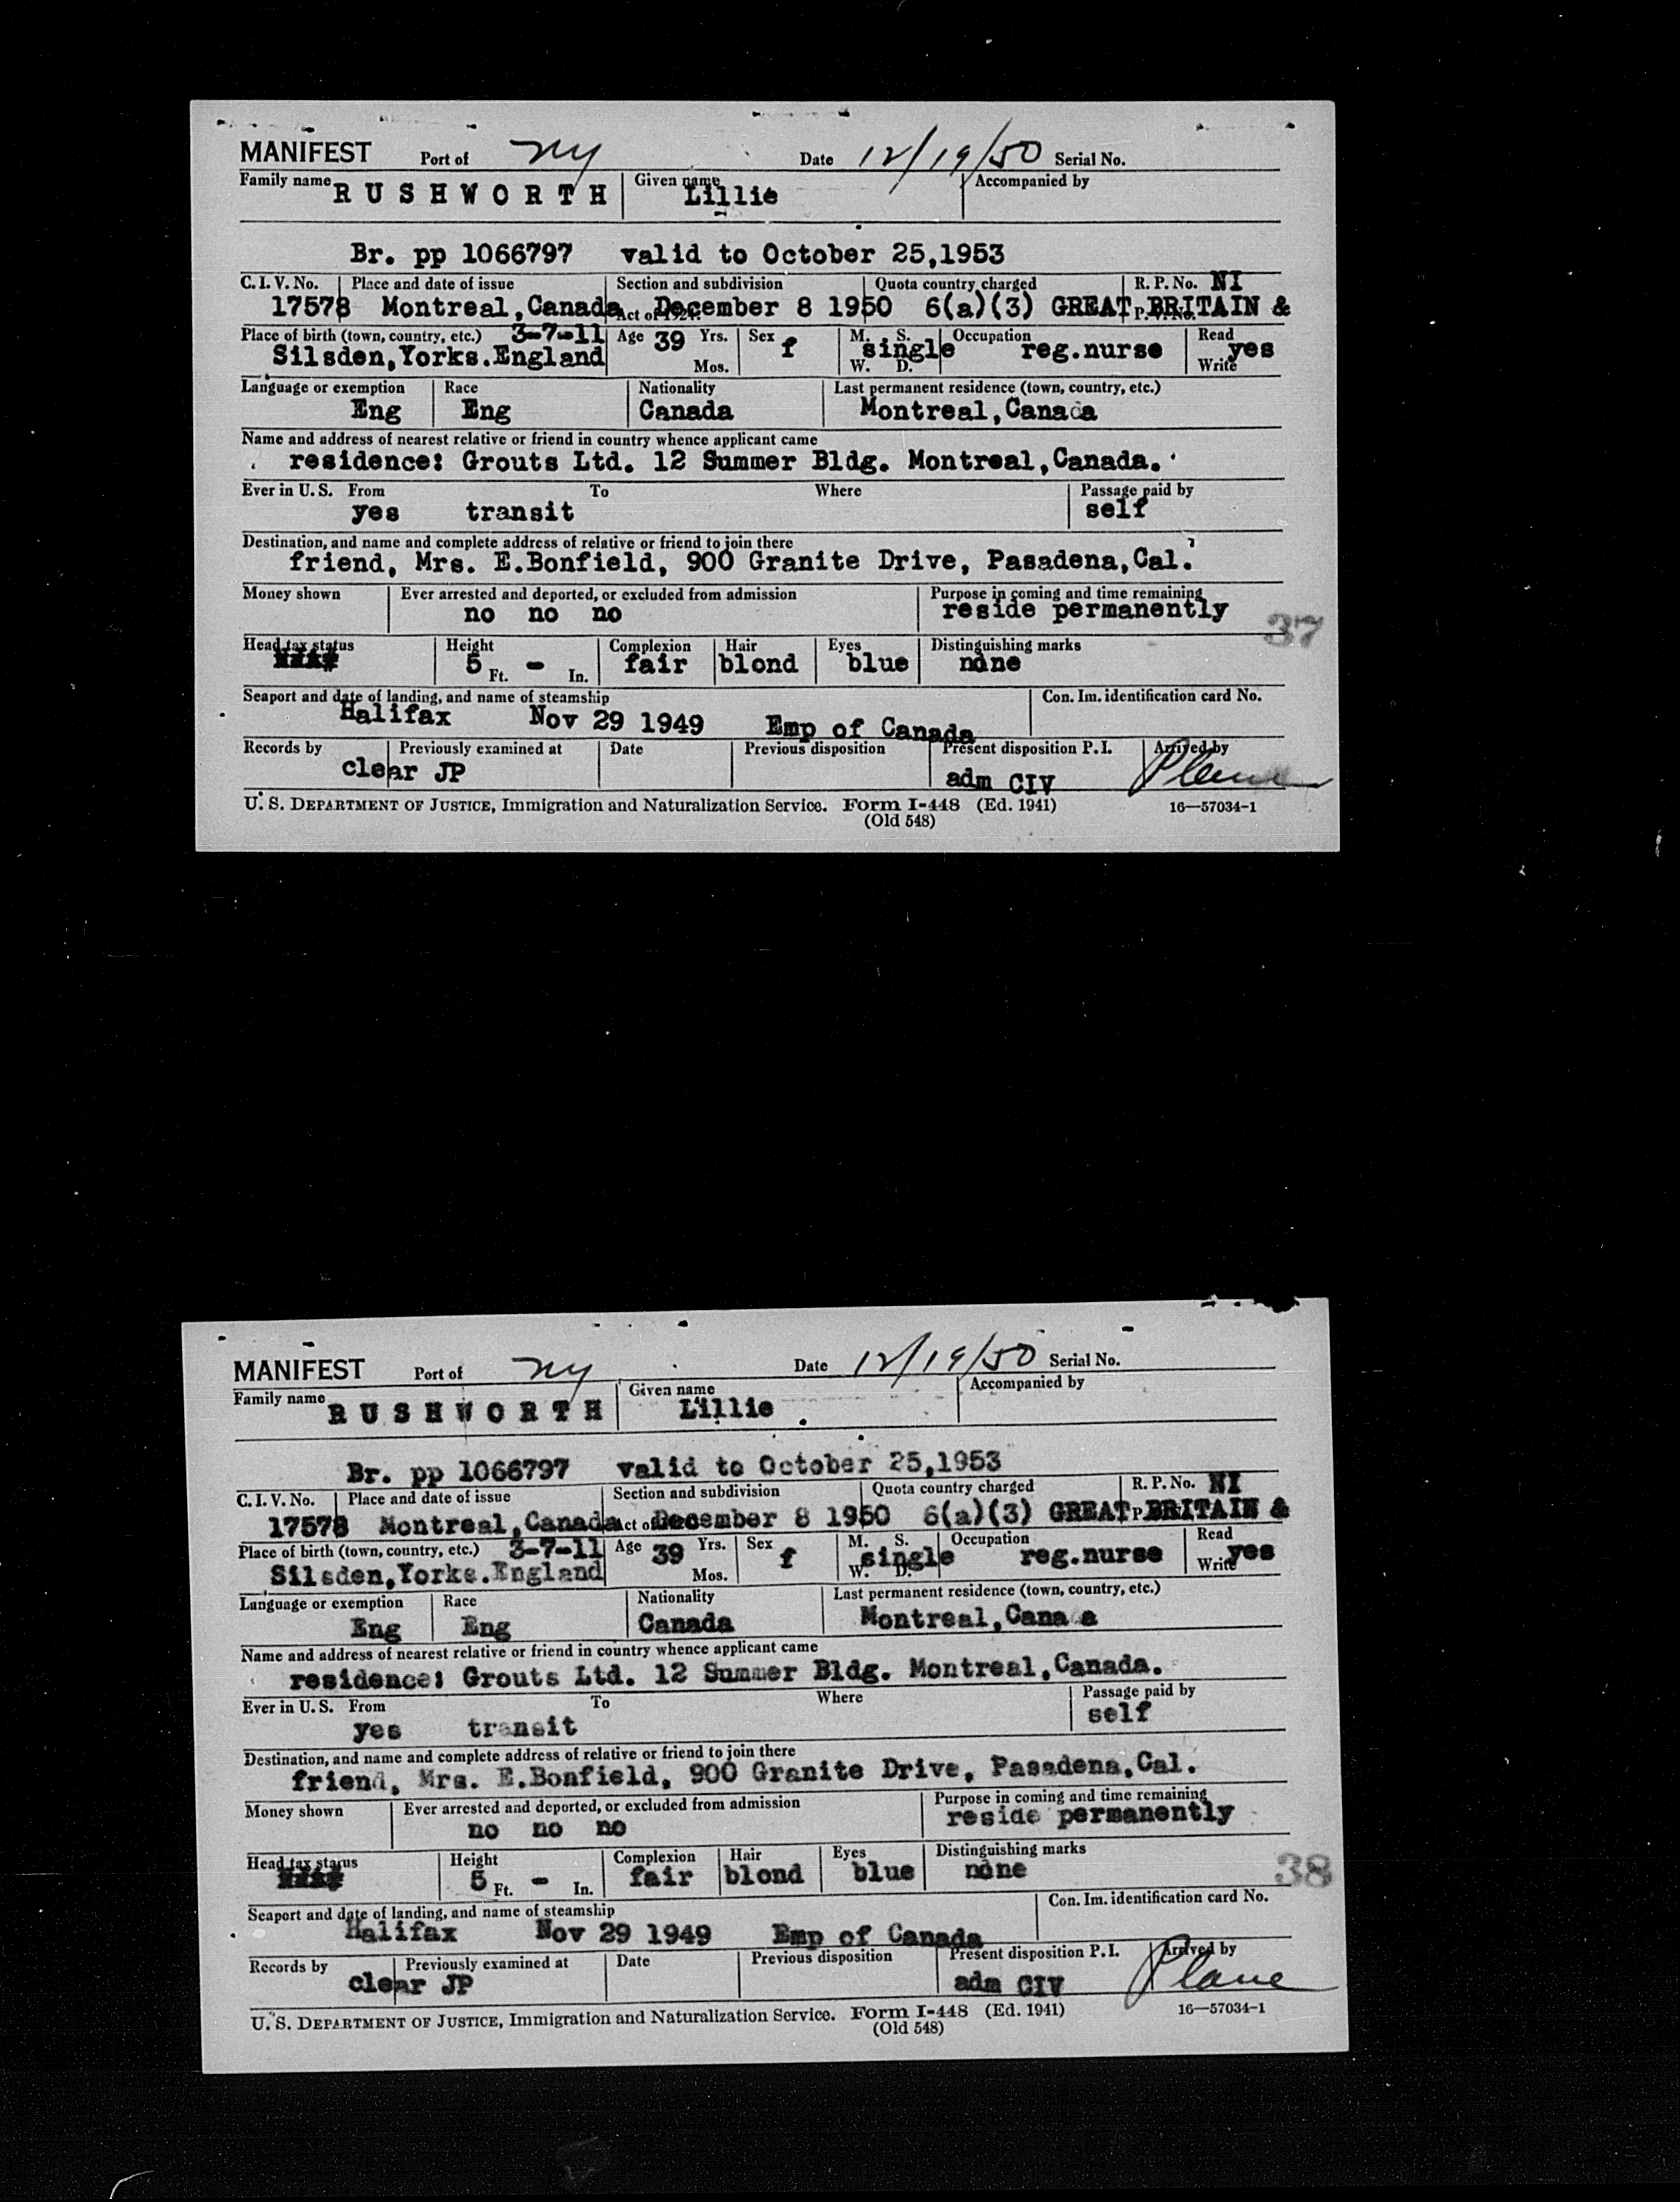 MANIFEST Port of NY Date 12/19/50 Serial No.
Family name RUSHWORTH Given name Lillie Accompanied by
Br. pp 1066797 valid to October 25,1953
C. I. V. No. Place and date of issue Section and subdivision Quota country charged R. P. No. NI
17578 Montreal,Canada Act of December 8 1950 6(a)(3) GREAT BRITAIN &
Place of birth (town, country, etc.) 3-7-11 Age 39 Yrs. Sex f M. S. single Occupation reg.nurse Read yes
Silsden,Yorks.England Mos. W. D. Write
Language or exemption Race Nationality Last permanent residence (town, country, etc.)
Eng Eng Canada Montreal,Canada
Name and address of nearest relative or friend in country whence applicant came
residence: Grouts Ltd. 12 Summer Bldg. Montreal,Canada.
Ever in U. S. From To Where Passage paid by
yes transit self
Destination, and name and complete address of relative or friend to join there
friend, Mrs. E.Bonfield, 900 Granite Drive, Pasadena,Cal.
Money shown Ever arrested and deported, or excluded from admission Purpose in coming and time remaining
no no no reside permanently
37
Head tax status Height Complexion Hair Eyes Distinguishing marks
5 Ft. - In. fair blond blue none
Seaport and date of landing, and name of steamship Con. Im. identification card No.
Halifax Nov 29 1949 Emp of Canada
Records by Previously examined at Date Previous disposition Present disposition P. I. Arrived by
clear JP adm CIV Plane
U. S. DEPARTMENT OF JUSTICE, Immigration and Naturalization Service. Form I-448 (Ed. 1941) 16—57034-1
(Old 548)
MANIFEST Port of NY Date 12/19/50 Serial No.
Family name RUSHWORTH Given name Lillie Accompanied by
Br. pp 1066797 valid to October 25,1953
C. I. V. No. Place and date of issue Section and subdivision Quota country charged R. P. No. NI
17578 Montreal,Canada Act of December 8 1950 6(a)(3) GREAT BRITAIN &
Place of birth (town, country, etc.) 3-7-11 Age 39 Yrs. Sex f M. S. single Occupation reg.nurse Read yes
Silsden,Yorks.England Mos. W. D. Write
Language or exemption Race Nationality Last permanent residence (town, country, etc.)
Eng Eng Canada Montreal,Cana a
Name and address of nearest relative or friend in country whence applicant came
residence: Grouts Ltd. 12 Summer Bldg. Montreal,Canada.
Ever in U. S. From To Where Passage paid by
yes transit self
Destination, and name and complete address of relative or friend to join there
friend, Mrs. E.Bonfield, 900 Granite Drive, Pasadena,Cal.
Money shown Ever arrested and deported, or excluded from admission Purpose in coming and time remaining
no no no reside permanently
38
Head tax status Height Complexion Hair Eyes Distinguishing marks
5 Ft. - In. fair blond blue none
Seaport and date of landing, and name of steamship Con. Im. identification card No.
Halifax Nov 29 1949 Emp of Canada
Records by Previously examined at Date Previous disposition Present disposition P. I. Arrived by
clear JP adm CIV Plane
U. S. DEPARTMENT OF JUSTICE, Immigration and Naturalization Service. Form I-448 (Ed. 1941) 16—57034-1
(Old 548)